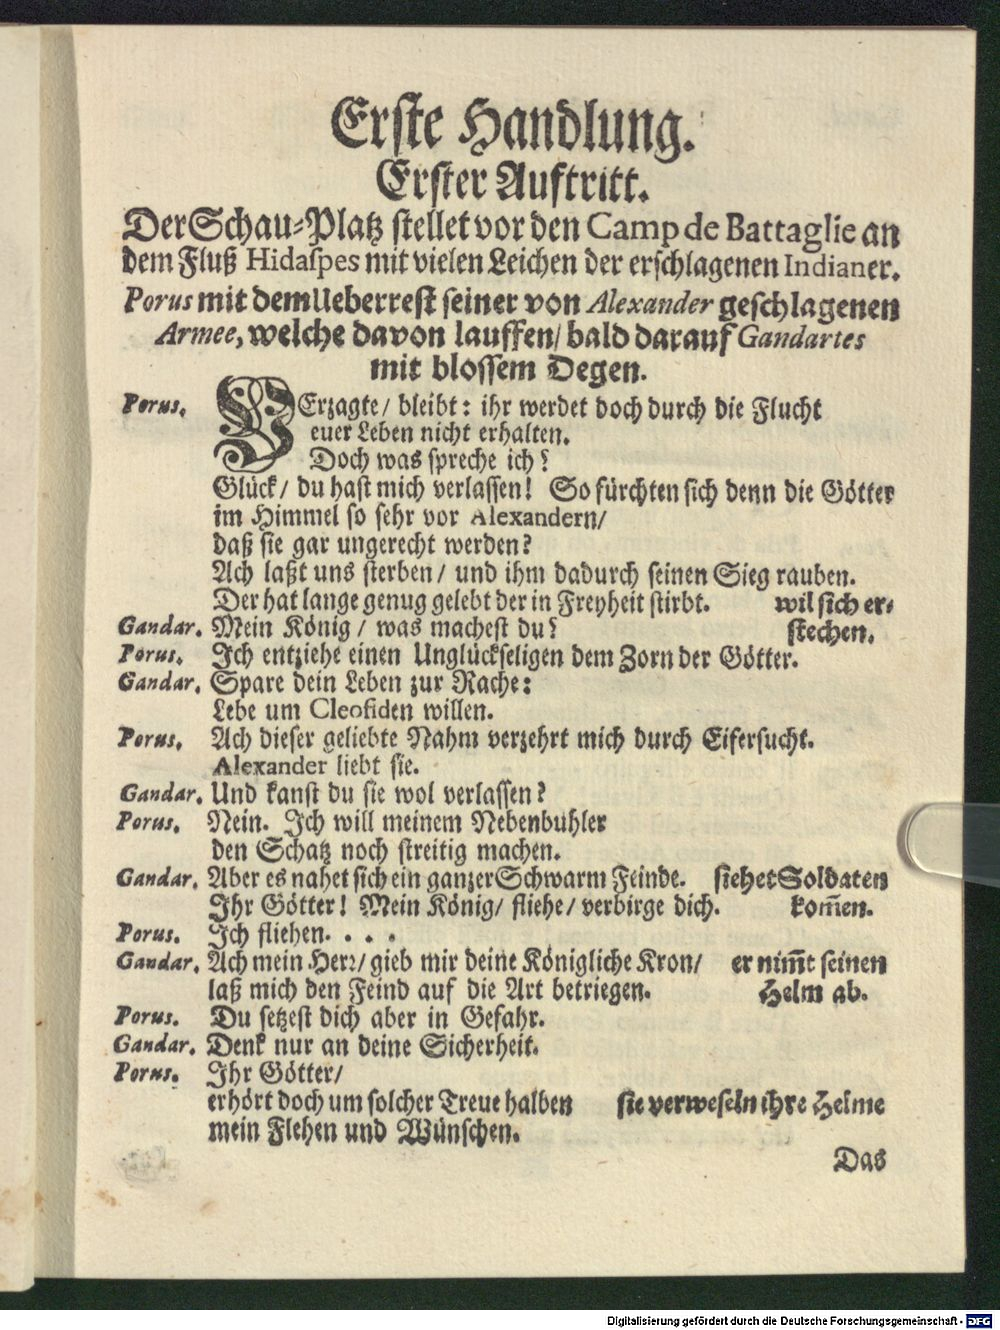 Erste Handlung.
Erster Auftritt.
Der Schau-Platz stellet vor den Camp de Battaglie an
dem Fluß Hidaspes mit vielen Leichen der erschlagenen Indianer.
Porus mit dem Ueberrest seiner von Alexander geschlagenen
Armee, welche davon lauffen/ bald darauf Gandartes
mit blossem Degen.
Porus. VErzagte/ bleibt: ihr werdet doch durch die Flucht
euer Leben nicht erhalten.
Doch was spreche ich?
Glück/ du hast mich verlassen! So fürchten sich denn die Götter
im Himmel so sehr vor Alexandern/
daß sie gar ungerecht werden?
Ach laßt uns sterben/ und ihm dadurch seinen Sieg rauben.
Der hat lange genug gelebt der in Freyheit stirbt. wil sich er-
Gandar. Mein König/ was machest du? stechen.
Porus. Ich entziehe einen Unglückseligen dem Zorn der Götter.
Gandar. Spare dein Leben zur Rache:
Lebe um Cleofiden willen.
Porus. Ach dieser geliebte Nahm verzehrt mich durch Eifersucht.
Alexander liebt sie.
Gandar. Und kanst du sie wol verlassen?
Porus. Nein. Ich will meinem Nebenbuhler
den Schatz noch streitig machen.
Gandar. Aber es nahet sich ein ganzer Schwarm Feinde. siehet Soldaten
Ihr Götter! Mein König/ fliehe/ verbirge dich. kom̅en.
Porus. Ich fliehen. . . .
Gandar. Ach mein Herr/ gieb mir deine Königliche Kron/ er nim̅t seinen
laß mich den Feind auf die Art betriegen. Helm ab.
Porus. Du setzest dich aber in Gefahr.
Gandar. Denk nur an deine Sicherheit.
Porus. Ihr Götter/
erhört doch um solcher Treue halben sie verweseln ihre Helme
mein Flehen und Wünschen.
Das
Digitalisierung gefördert durch die Deutsche Forschungsgemeinschaft - DFG